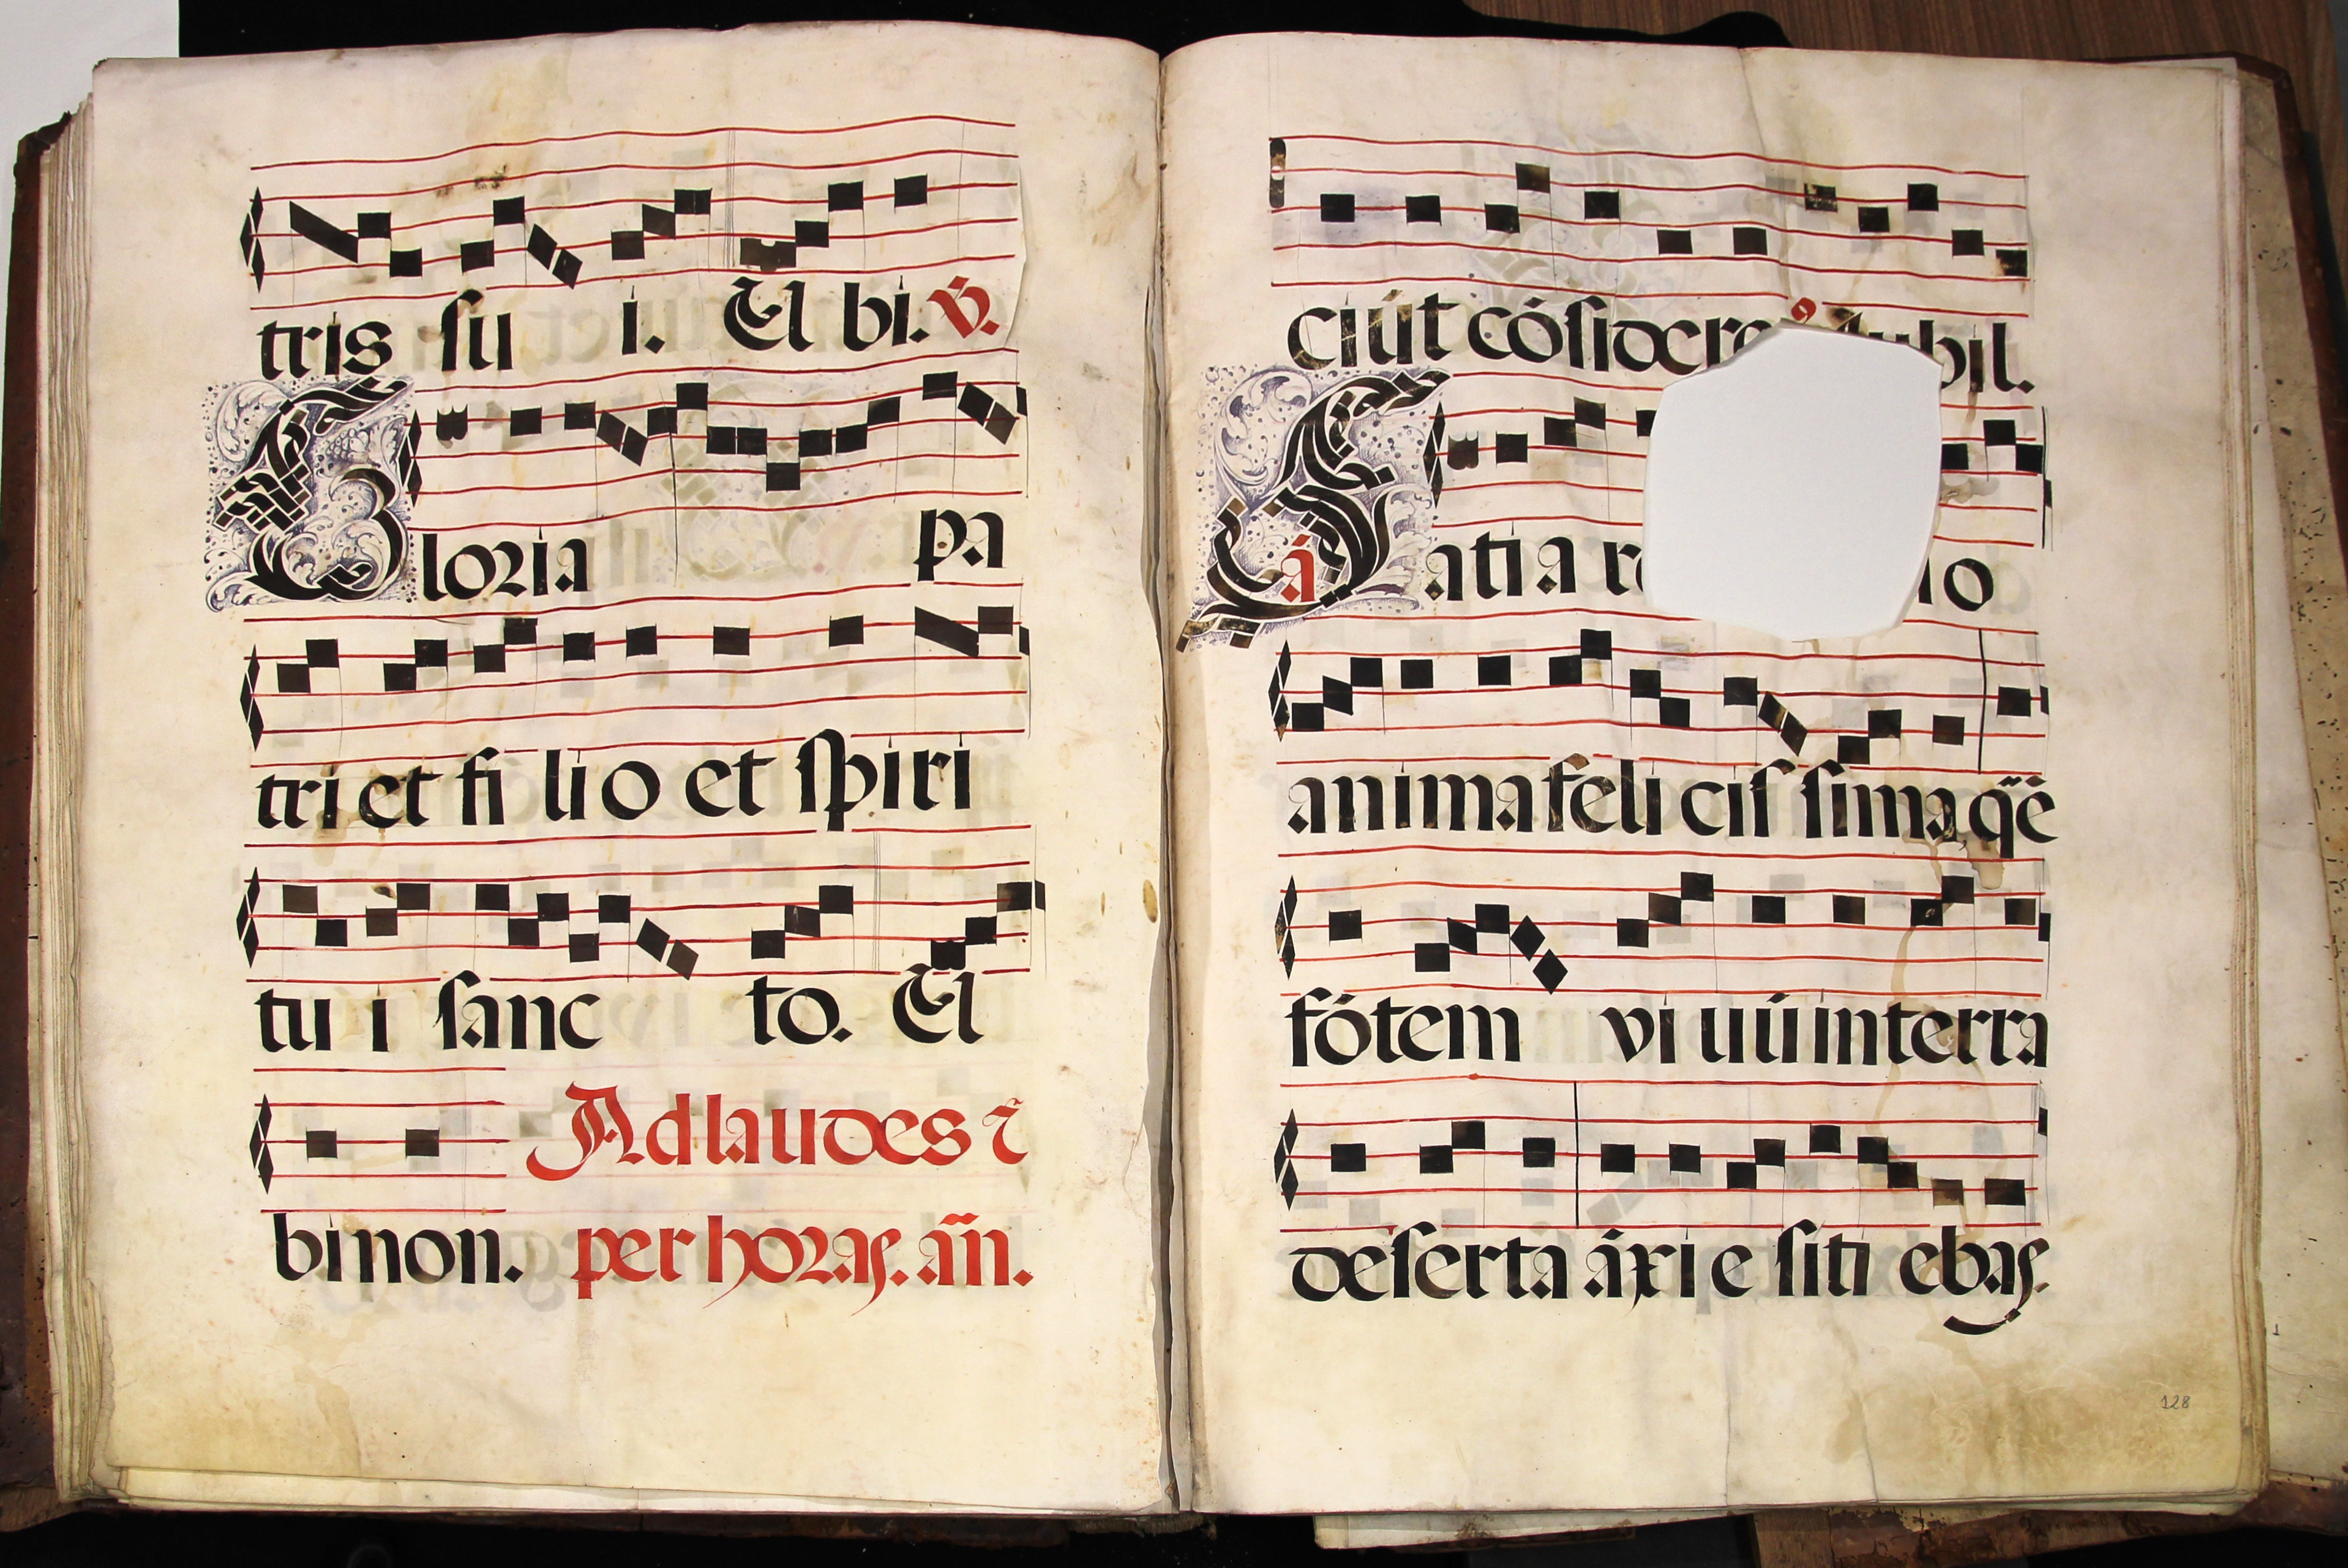 tris su i. Et bi. V.
Gloria pa
tri et fi lio et spiri
tu i sanc to. Et
Ad laudes ⁊
bi non. per horas. añ.
ciút cósidere
bil.
Satia r
lo
á
anima feli cis sima q̃ẽ
fótem vi uú in terra
deserta áxi e siti ebas.
128